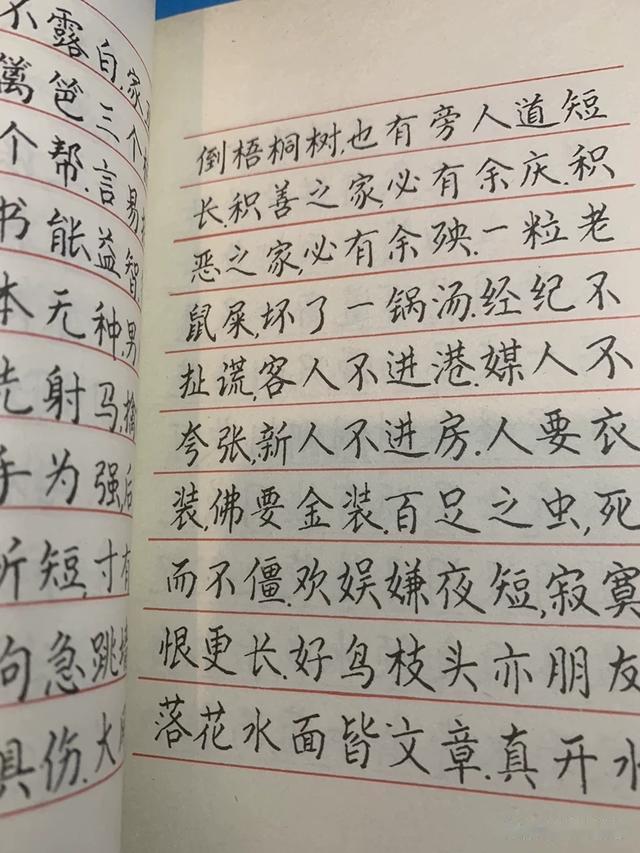 不露白.家
篱笆三个
个帮.言易
书能益智
本无种.男
先射马.擒
手为强,后
所短,寸有
向急跳墙
俱伤.大
倒梧桐树,也有旁人道短
长.积善之家,必有余庆.积
恶之家,必有余殃.一粒老
鼠屎,坏了一锅汤.经纪不
扯谎,客人不进港.媒人不
夸张,新人不进房.人要衣
装,佛要金装.百足之虫,死
而不僵.欢娱嫌夜短,寂寞
恨更长.好鸟枝头亦朋友
落花水面皆文章.真开水